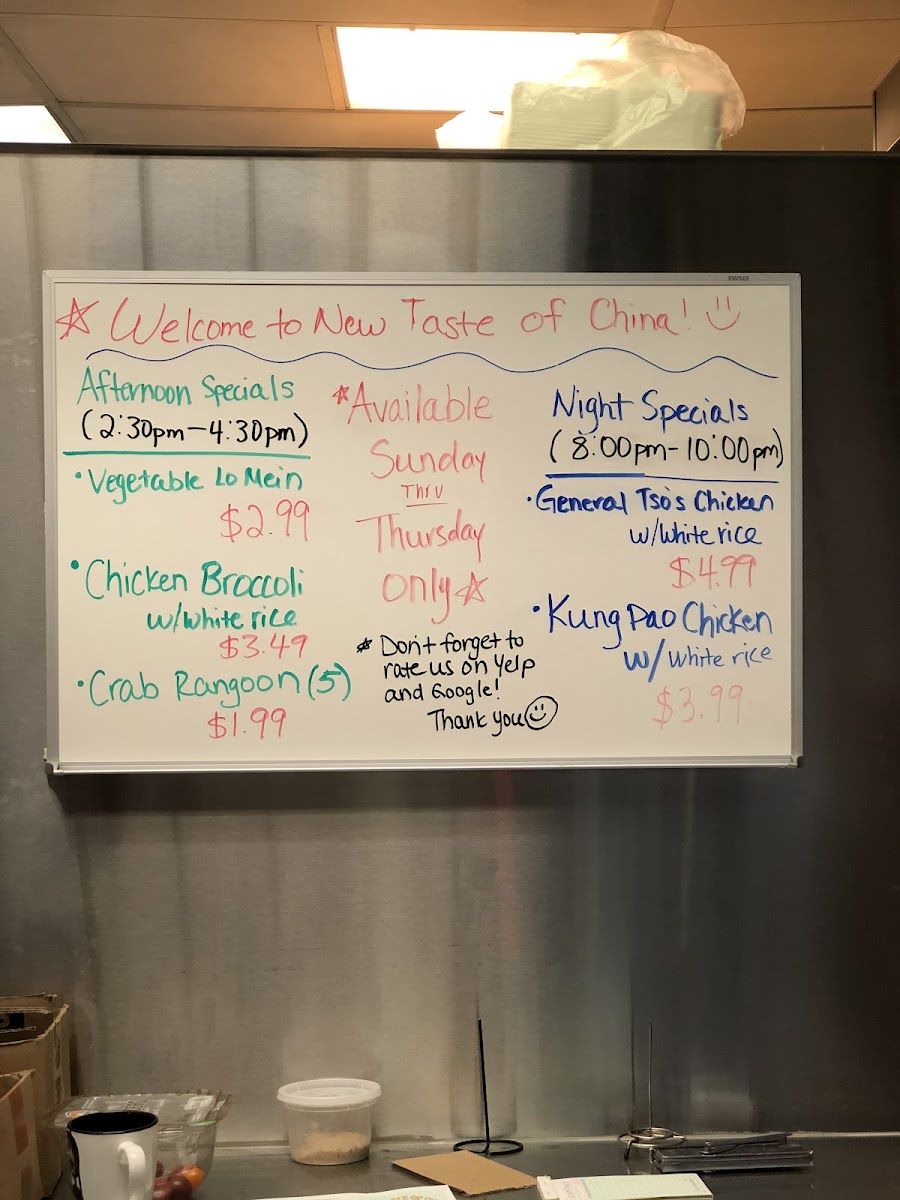 STAPLES
☆ Welcome to New Taste of China! :)
Afternoon Specials
(2:30pm-4:30pm)
• Vegetable Lo Mein
$2.99
• Chicken Broccoli
w/white rice
$3.49
• Crab Rangoon (5)
$1.99
☆Available
Sunday
Thru
Thursday
only☆
☆ Don't forget to
rate us on Yelp
and Google!
Thank you☺
Night Specials
(8:00pm-10:00pm)
• General Tso's Chicken
w/white rice
$4.99
• Kung Pao Chicken
w/ white rice
$3.99